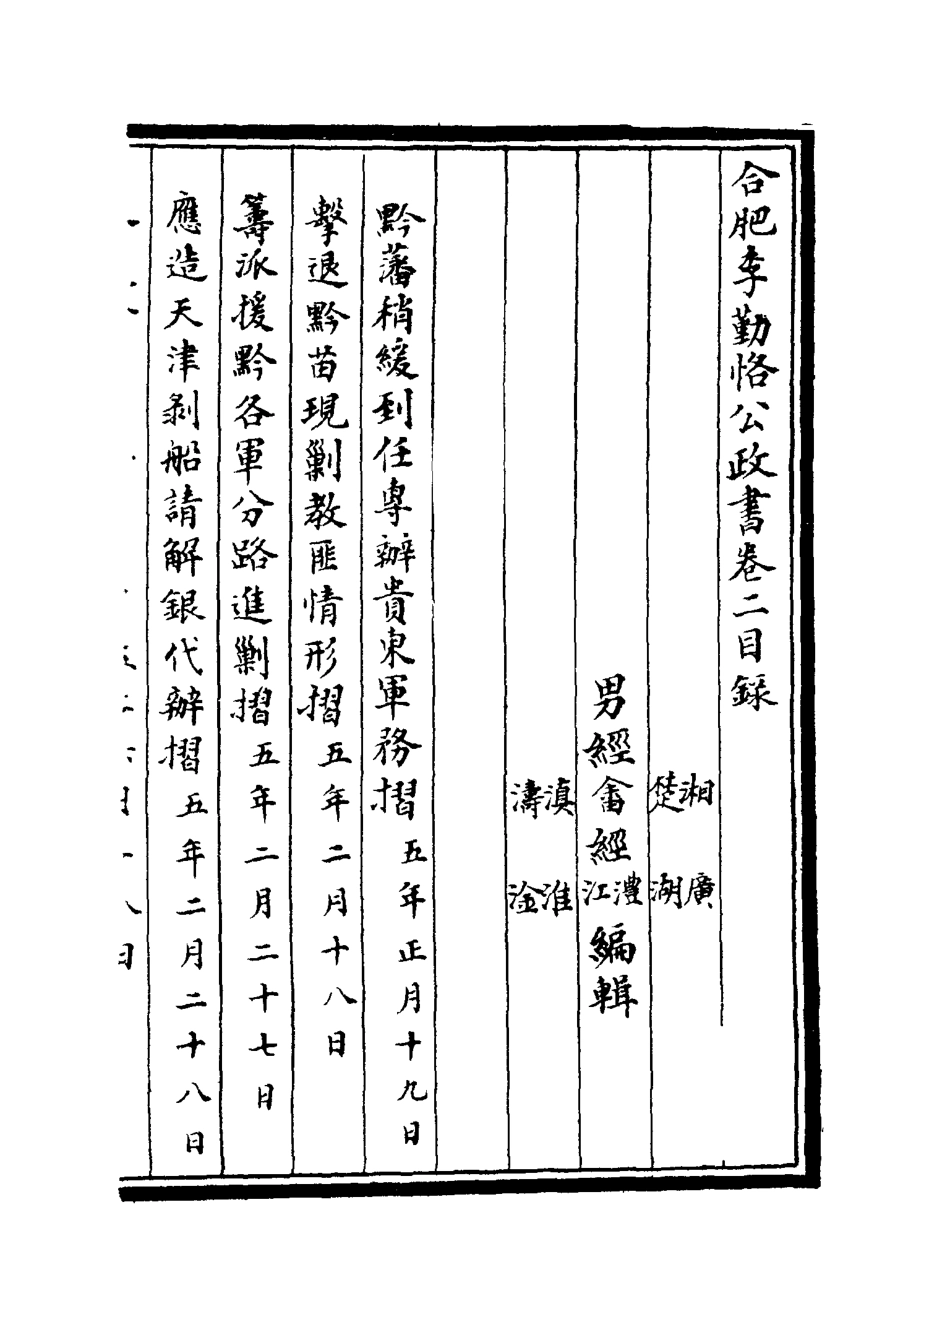 合肥李勤恪公政書卷二目錄
湘　廣
楚　湖
男經畬經灃江編輯
滇　淮
濤　淦
黔藩稍緩到任專辦貴東軍務摺五年正月十九日
擊退黔苗現剿教匪情形摺五年二月十八日
籌派援黔各軍分路進剿摺五年二月二十七日
應造天津剝船請解銀代辦摺五年二月二十八日